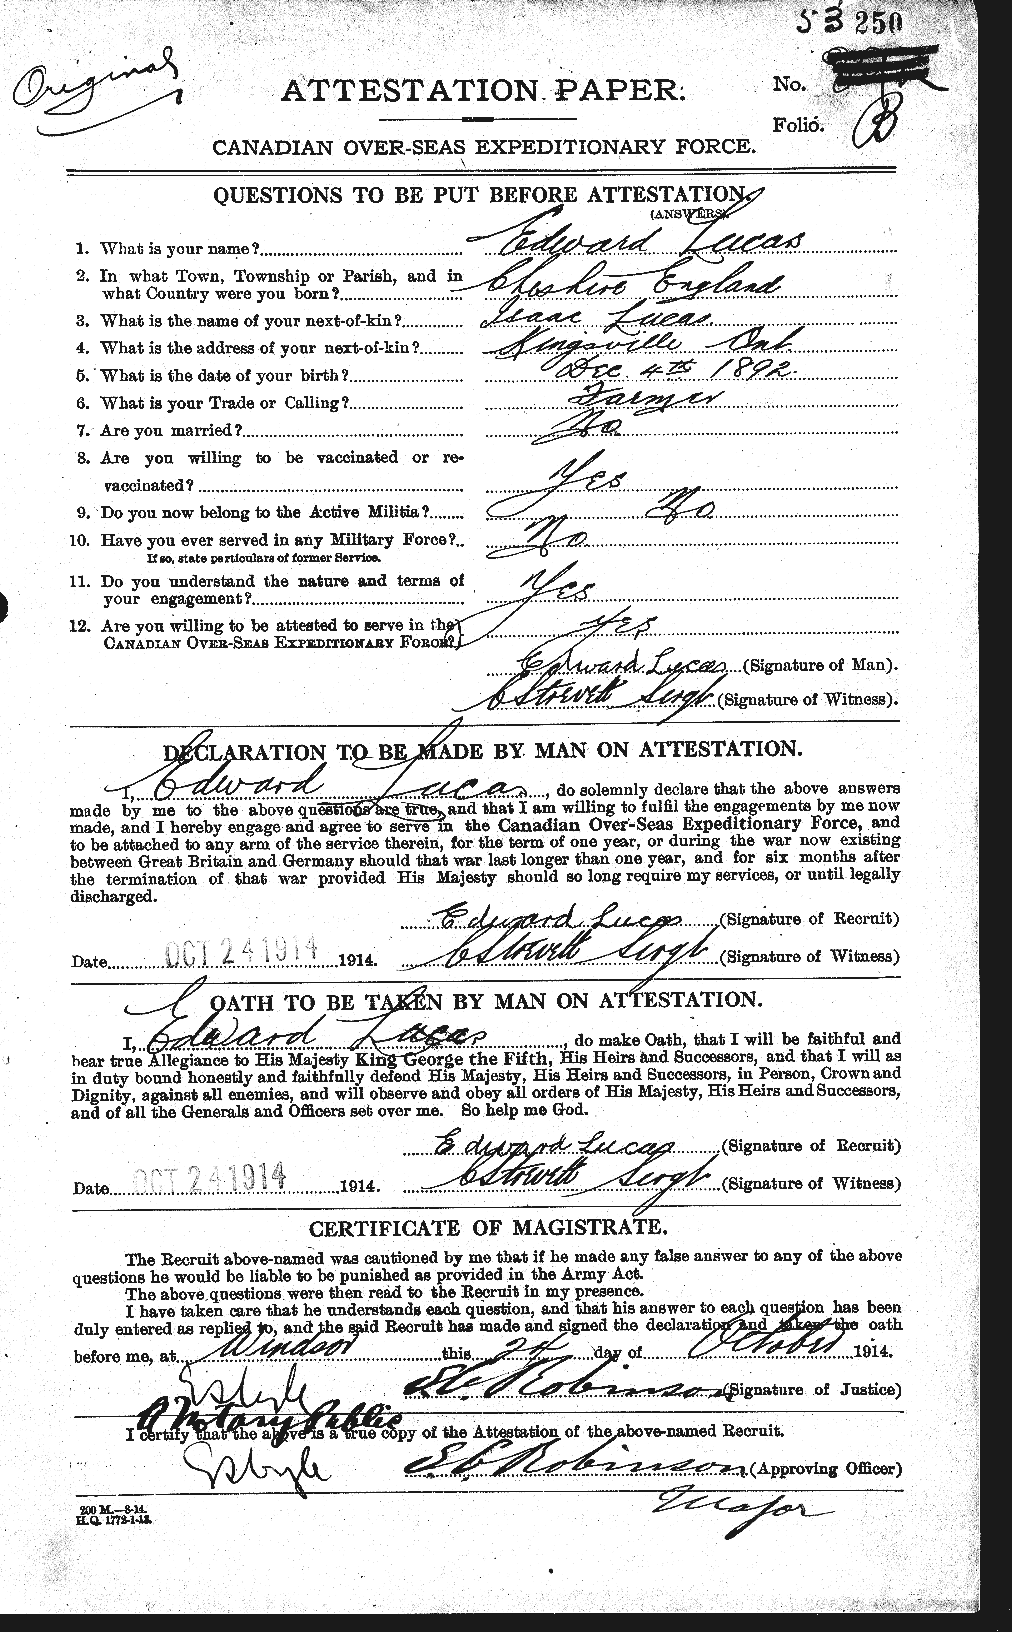 53 250
Original
ATTESTATION PAPER.
No.
Folio. B
CANADIAN OVER-SEAS EXPEDITIONARY FORCE.
QUESTIONS TO BE PUT BEFORE ATTESTATION.
(ANSWERS).
1. What is your name? Edward Lucas
2. In what Town, Township or Parish, and in
what Country were you born? Cheshire England
3. What is the name of your next-of-kin? Isaac Lucas
4. What is the address of your next-of-kin? Kingsville Ont.
5. What is the date of your birth? Dec. 4th 1892
6. What is your Trade or Calling? Farmer
7. Are you married? No
8. Are you willing to be vaccinated or re-
vaccinated? Yes
9. Do you now belong to the Active Militia? No
10. Have you ever served in any Military Force? No
If so, state particulars of former Service.
11. Do you understand the nature and terms of
your engagement? Yes
12. Are you willing to be attested to serve in the
CANADIAN OVER-SEAS EXPEDITIONARY FORCE? Yes
Edward Lucas (Signature of Man).
Sergt (Signature of Witness).
DECLARATION TO BE MADE BY MAN ON ATTESTATION.
I, Edward Lucas, do solemnly declare that the above answers
made by me to the above questions are true, and that I am willing to fulfil the engagements by me now
made, and I hereby engage and agree to serve in the Canadian Over-Seas Expeditionary Force, and
to be attached to any arm of the service therein, for the term of one year, or during the war now existing
between Great Britain and Germany should that war last longer than one year, and for six months after
the termination of that war provided His Majesty should so long require my services, or until legally
discharged.
Edward Lucas (Signature of Recruit)
Date OCT 24 1914 1914. Sergt (Signature of Witness)
OATH TO BE TAKEN BY MAN ON ATTESTATION.
I, Edward Lucas, do make Oath, that I will be faithful and
bear true Allegiance to His Majesty King George the Fifth, His Heirs and Successors, and that I will as
in duty bound honestly and faithfully defend His Majesty, His Heirs and Successors, in Person, Crown and
Dignity, against all enemies, and will observe and obey all orders of His Majesty, His Heirs and Successors,
and of all the Generals and Officers set over me. So help me God.
Edward Lucas (Signature of Recruit)
Date OCT 24 1914 1914. Sergt (Signature of Witness)
CERTIFICATE OF MAGISTRATE.
The Recruit above-named was cautioned by me that if he made any false answer to any of the above
questions he would be liable to be punished as provided in the Army Act.
The above questions were then read to the Recruit in my presence.
I have taken care that he understands each question, and that his answer to each question has been
duly entered as replied to, and the said Recruit has made and signed the declaration and taken the oath
before me, at Windsor this 24 day of October 1914.
Robinson (Signature of Justice)
A Notary Public
I certify that the above is a true copy of the Attestation of the above-named Recruit.
S C Robinson (Approving Officer)
Major
200 M.—8-14.
H.Q. 1772-1-13.